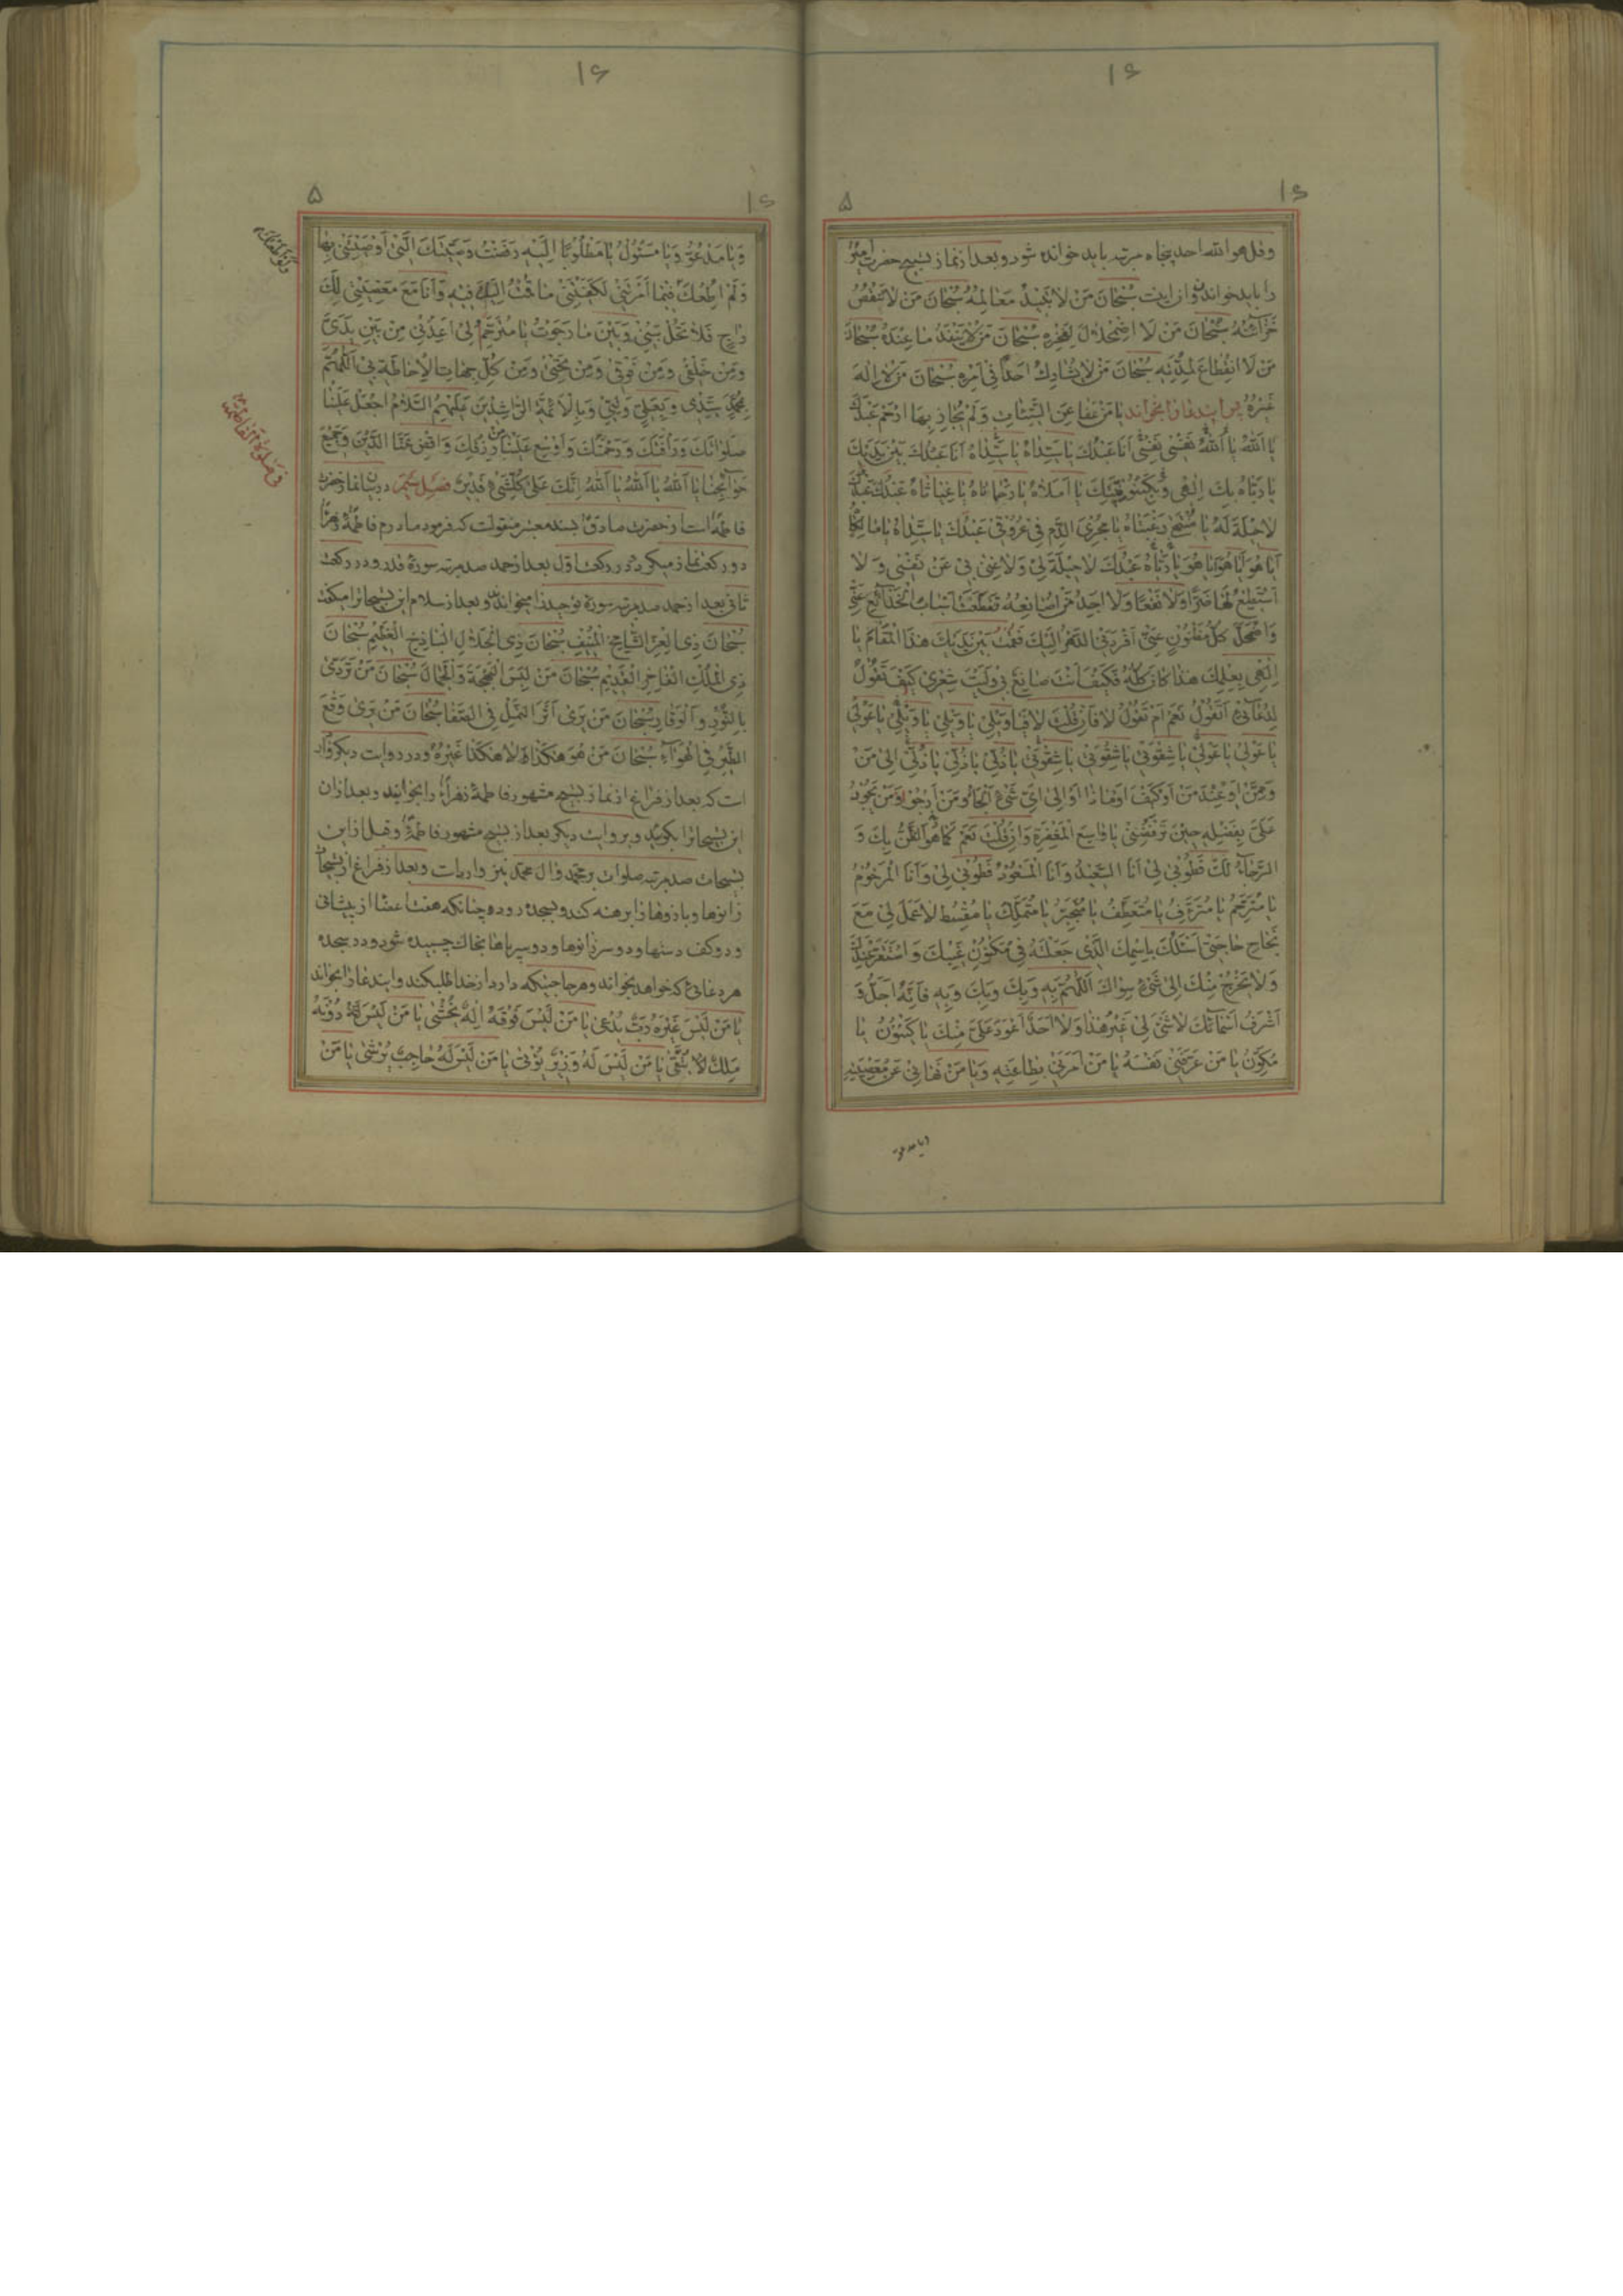 ۱۶
۱۶
۵
وقل هو الله احد پنجاه مرتبه باید خوانده شود و بعد از نماز تسبیح حضرت امیر
را باید خواند و آن اینست سُبْحانَ مَنْ لا تَبیدُ مَعالِمُهُ سُبْحانَ مَنْ لا تَنْقُصُ
خَزآئِنُهُ سُبْحانَ مَنْ لَا اضْمِحْلالَ لِفَخْرِهِ سُبْحانَ مَنْ لا یَنْفَدُ ما عِنْدَهُ سُبْحانَ
مَنْ لَا انْقِطاعَ لِمُدَّتِهِ سُبْحانَ مَنْ لا یُشارِكُ اَحَداً فی اَمْرِهِ سُبْحانَ مَنْ لا اِلهَ
غَیْرُهُ پس ایندعا را بخواند یا مَنْ عَفا عَنِ السَّیِّئاتِ وَلَمْ یُجازِ بِهَا ارْحَمْ عَبْدَكَ
یا اَللهُ یا اَللهُ نَفْسی نَفْسی اَنَا عَبْدُكَ یا سَیِّداهُ یا سَیِّداهُ اَنَا عَبْدُكَ بَیْنَ یَدَیْكَ
یا رَبّاهُ بِكَ اِلهی وَبِكَیْنُونَتِكَ یا اَمَلاهُ یا رَحْماناهُ یا غِیاثاهُ عَبْدُكَ عَبْدُكَ
لا حیلَةَ لَهُ یا مُنْتَهی رَغْبَتاهُ یا مُجْرِیَ الدَّمِ فی عُرُوقی عَبْدُكَ یا سَیِّداهُ یا مالِكاهُ
اَیا هُوَ اَیا هُوَ یا هُوَ یا رَبّاهُ عَبْدُكَ لا حیلَةَ لی وَلا غِنی بی عَنْ نَفْسی وَلا
اَسْتَطیعُ لَها ضَرّاً وَلا نَفْعاً وَلا اَجِدُ مَنْ اُصانِعُهُ تَقَطَّعَتْ اَسْبابُ الْخَدآئِعِ عَنّی
وَاضْمَحَلَّ کُلُّ مَظْنُونٍ عَنّی اَفْرَدَنِی الدَّهْرُ اِلَیْكَ فَقُمْتُ بَیْنَ یَدَیْكَ هذَا الْمَقامَ یا
اِلهی بِعِلْمِكَ هذا کانَ کُلُّهُ فَکَیْفَ اَنْتَ صانِعٌ بی وَلَیْتَ شِعْری کَیْفَ تَقُولُ
لِدُعآئی اَتَقُولُ نَعَمْ اَمْ تَقُولُ لا فَاِنْ قُلْتَ لا فَیا وَیْلی یا وَیْلی یا وَیْلی یا عَوْلی
یا عَوْلی یا عَوْلی یا شِقْوَتی یا شِقْوَتی یا شِقْوَتی یا ذُلّی یا ذُلّی یا ذُلّی اِلی مَنْ
وَمِمَّنْ اَوْ عِنْدَ مَنْ اَوْ کَیْفَ اَوْ ماذا اَوْ اِلی اَیِّ شَیْءٍ اَلْجَاُ وَمَنْ اَرْجُو وَمَنْ یَجُودُ
عَلَیَّ بِفَضْلِهِ حینَ تَرْفُضُنی یا واسِعَ الْمَغْفِرَةِ وَاِنْ قُلْتَ نَعَمْ کَما هُوَ الظَّنُّ بِكَ وَ
الرَّجآءُ لَكَ فَطُوبی لی اَنَا السَّعیدُ وَاَنَا الْمَسْعُودُ فَطُوبی لی وَاَنَا الْمَرْحُومُ
یا مُتَرَحِّمُ یا مُتَرَئِّفُ یا مُتَعَطِّفُ یا مُتَجَبِّرُ یا مُتَمَلِّكُ یا مُقْسِطُ لا عَمَلَ لی مَعَ
نَجاحِ حاجَتی اَسْئَلُكَ بِاسْمِكَ الَّذی جَعَلْتَهُ فی مَکْنُونِ غَیْبِكَ وَاسْتَقَرَّ عِنْدَكَ
وَلا یَخْرُجُ مِنْكَ اِلی شَیْءٍ سِواكَ اَللّهُمَّ بِهِ وَبِكَ وَبِكَ وَبِهِ فَاِنَّهُ اَجَلُّ وَ
اَشْرَفُ اَسْمآئِكَ لا شَیْءَ لی غَیْرُ هذا وَلا اَحَدَ اَعْوَدُ عَلَیَّ مِنْكَ یا کَیْنُونُ یا
مُکَوِّنُ یا مَنْ عَرَّفَنی نَفْسَهُ یا مَنْ اَمَرَنی بِطاعَتِهِ وَیا مَنْ نَهانی عَنْ مَعْصِیَتِهِ
ویا مدعو
۱۶
۱۶
۵
وَیا مَدْعُوُّ وَیا مَسْئُولُ یا مَطْلُوباً اِلَیْهِ رَفَضْتُ وَصِیَّتَكَ الَّتی اَوْصَیْتَنی بِها
وَلَمْ اُطِعْكَ فیما اَمَرْتَنی لَکَفَیْتَنی ما قُمْتُ اِلَیْكَ فیهِ وَاَنَا مَعَ مَعْصِیَتی لَكَ
راجٍ فَلا تَحُلْ بَیْنی وَبَیْنَ ما رَجَوْتُ یا مُتَرَحِّمُ لی اَعِذْنی مِنْ بَیْنِ یَدَیَّ
وَمِنْ خَلْفی وَمِنْ فَوْقی وَمِنْ تَحْتی وَمِنْ کُلِّ جِهاتِ الْاِحاطَةِ بی اَللّهُمَّ
بِمُحَمَّدٍ سَیِّدی وَبِعَلِیٍّ وَلِیّی وَبِالْاَئِمَّةِ الرّاشِدینَ عَلَیْهِمُ السَّلامُ اجْعَلْ عَلَیْنا
صَلَواتِكَ وَرَاْفَتَكَ وَرَحْمَتَكَ وَاَوْسِعْ عَلَیْنا مِنْ رِزْقِكَ وَاقْضِ عَنَّا الدَّیْنَ وَجَمیعَ
حَوآئِجِنا یا اَللهُ یا اَللهُ یا اَللهُ اِنَّكَ عَلی کُلِّ شَیْءٍ قَدیرٌ فصل ششم در بیان نماز حضرت
فاطمه است از حضرت صادق بسند معتبر منقولست که فرمود مادرم فاطمه زهرا
دو رکعت نماز میکرد در رکعت اول بعد از حمد صد مرتبه سورهٔ قدر و در رکعت
ثانی بعد از حمد صد مرتبه سورهٔ توحید را میخواند و بعد از سلام این تسبیحاترا میگفت
سُبْحانَ ذِی الْعِزِّ الشّامِخِ الْمُنیفِ سُبْحانَ ذِی الْجَلالِ الْباذِخِ الْعَظیمِ سُبْحانَ
ذِی الْمُلْكِ الْفاخِرِ الْقَدیمِ سُبْحانَ مَنْ لَبِسَ الْبَهْجَةَ وَالْجَمالَ سُبْحانَ مَنْ تَرَدّی
بِالنُّورِ وَالْوَقارِ سُبْحانَ مَنْ یَری اَثَرَ النَّمْلِ فِی الصَّفا سُبْحانَ مَنْ یَری وَقْعَ
الطَّیْرِ فِی الْهَوآءِ سُبْحانَ مَنْ هُوَ هکَذا لا هکَذا غَیْرُهُ و در روایت دیگر وارد
است که بعد از فراغ از نماز تسبیح مشهور فاطمهٔ زهراء را بخوانید و بعد از آن
این تسبیحاترا بگوئید و بروایت دیگر بعد از تسبیح مشهور فاطمه و قبل از این
تسبیحات صد مرتبه صلوات بر محمد وآل محمد نیز وارد است و بعد از فراغ از تسبیحات
زانوها و بازوها را برهنه کند و بسجده رود چنانکه هفت اعضا از پیشانی
و دو کف دستها و دو سر زانوها و دو سر پاها بخاك چسبیده شود و در سجده
هر دعائی که خواهد بخواند و هر حاجتیکه دارد از خدا طلب کند و ایندعا را بخواند
یا مَنْ لَیْسَ غَیْرَهُ رَبٌّ یُدْعی یا مَنْ لَیْسَ فَوْقَهُ اِلهٌ یُخْشی یا مَنْ لَیْسَ دُونَهُ
مَلِكٌ یُتَّقی یا مَنْ لَیْسَ لَهُ وَزیرٌ یُؤْتی یا مَنْ لَیْسَ لَهُ حاجِبٌ یُرْشی یا مَنْ